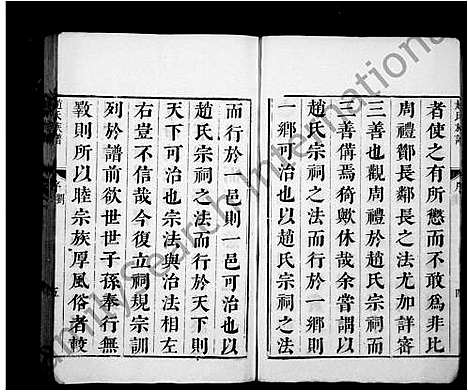 者使之有所懲而不敢為非比
周禮酇長鄰長之法尤加詳審
三善也觀周禮於趙氏宗祠而
三善備焉猗歟休哉余嘗謂以
趙氏宗祠之法而行於一鄉則
一鄉可治也以趙氏宗祠之法
而行於一邑則一邑可治也以
趙氏宗祠之法而行於天下則
天下可治也宗法與治法相左
右豈不信哉今復立祠規宗訓
列於譜前欲世世子孫奉行無
斁則所以睦宗族厚風俗者較
趙氏族譜
序
四
趙氏族譜
序
五
FamilySearch International